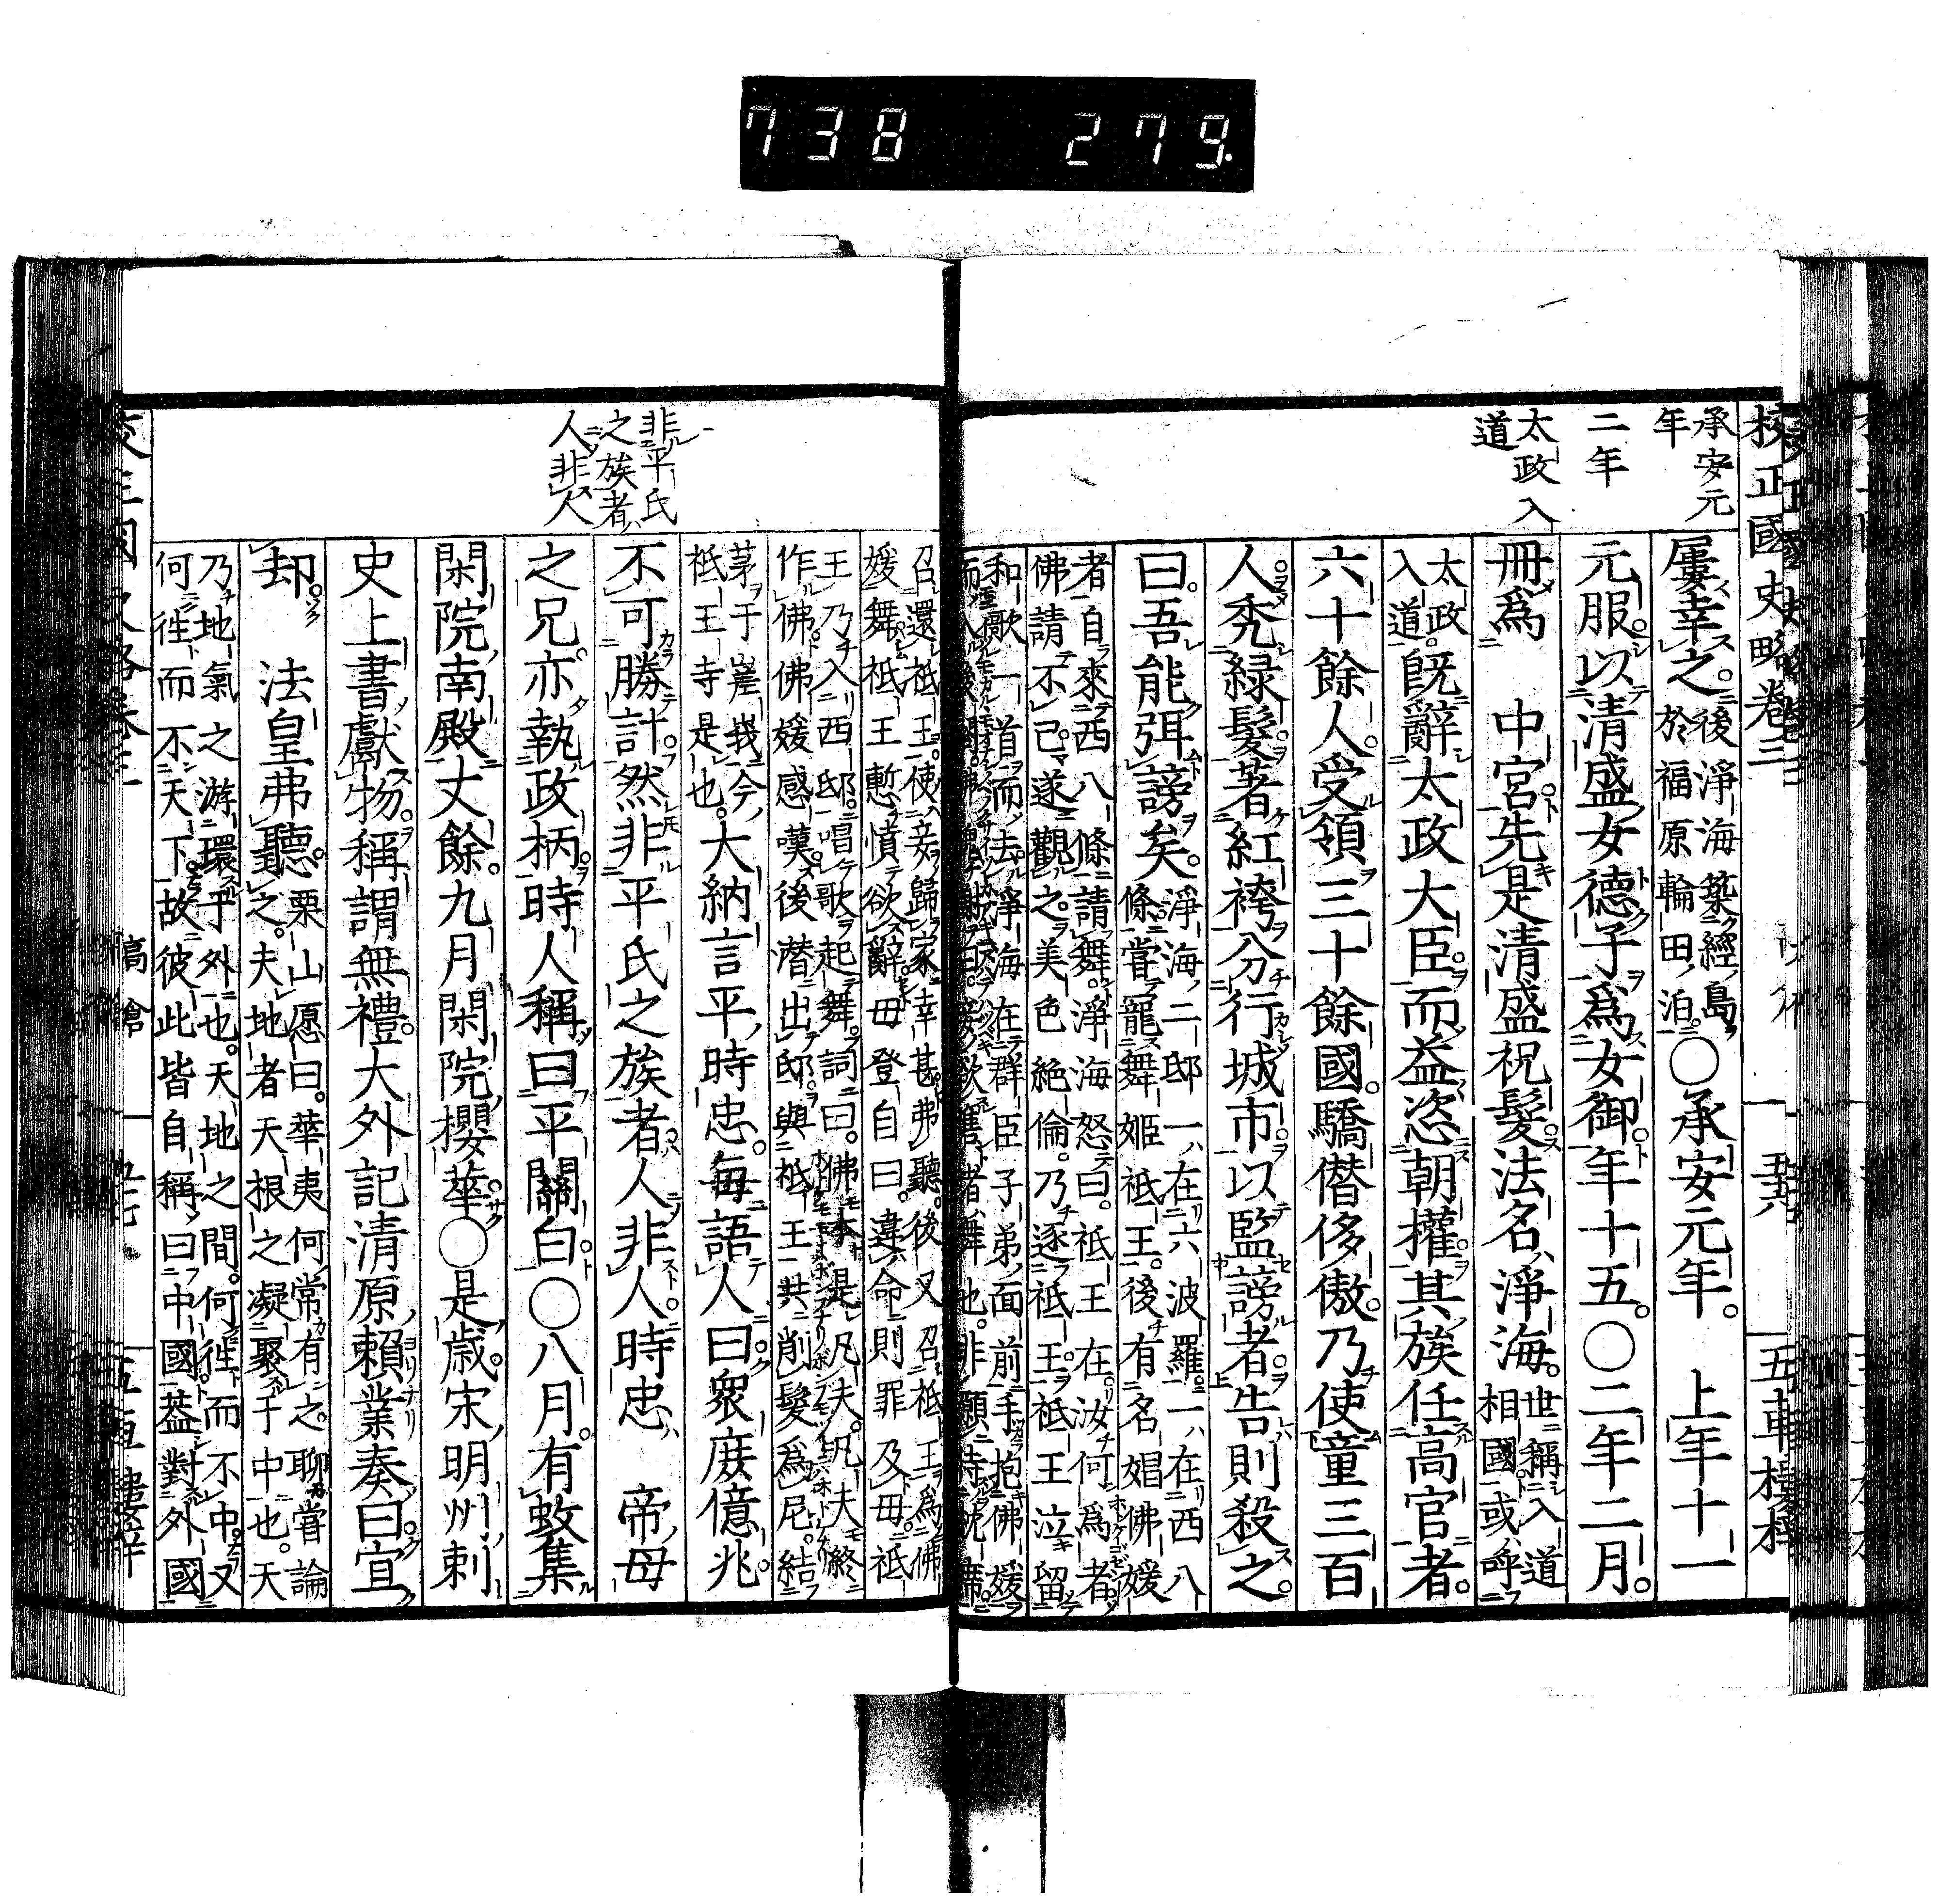 738 279.
校正國史略卷三
五車樓梓
承安元
年
二年
太政入
道
屢幸之。後淨海築經島
於福原輪田泊。○承安元年。 上年十一
元服。以清盛女德子爲女御。年十五。○二年二月。
冊爲 中宮。先是清盛祝髮法名淨海。世稱入道
相國或呼
太政
入道。旣辭太政大臣。而益恣朝權。其族任高官者。
六十餘人。受領三十餘國。驕僭侈傲。乃使童三百
人秃緑髮著紅袴分行城市。以監謗者。告則殺之。
曰。吾能弭謗矣。淨海二邸一在六波羅一在西八
條嘗寵舞姬祇王。後有名娼佛媛
者自來西八條請舞。淨海怒曰。祇王在汝何爲者
佛請不已遂觀之。美色絶倫。乃逐祇王。祇王泣留
和歌一首而去。淨海在群臣子弟面前手抱佛媛
召還祇王。使妾歸家幸甚弗聽。後又召祇王爲佛
媛舞祇王慙憤欲辭母登自曰。違命則罪及母。祇
王乃入西邸。唱歌起舞。詞曰。佛本是凡夫。凡夫終
作佛佛媛感嘆後潛出邸。與祇王共削髮爲尼。結
茅于嵯峩今
祇王寺是也。大納言平時忠。每語人曰。衆庶億兆。
不可勝計。然非平氏之族者。人非人。時忠 帝母
之兄亦執政柄。時人稱曰平關白。○八月。有蚊集
閑院南殿丈餘。九月閑院櫻華。○是歲。宋明州刺
史上書獻物。稱謂無禮。大外記清原賴業奏曰。宜
却。 法皇弗聽之。栗山愿曰。華夷何常有之。聊嘗論
夫地者天根之凝聚于中也。天
乃地氣之游環于外也。天地之間。何徃而不中。又
何徃而不天下。故彼此皆自稱曰中國葢對外國
非平氏
之族者
人非人